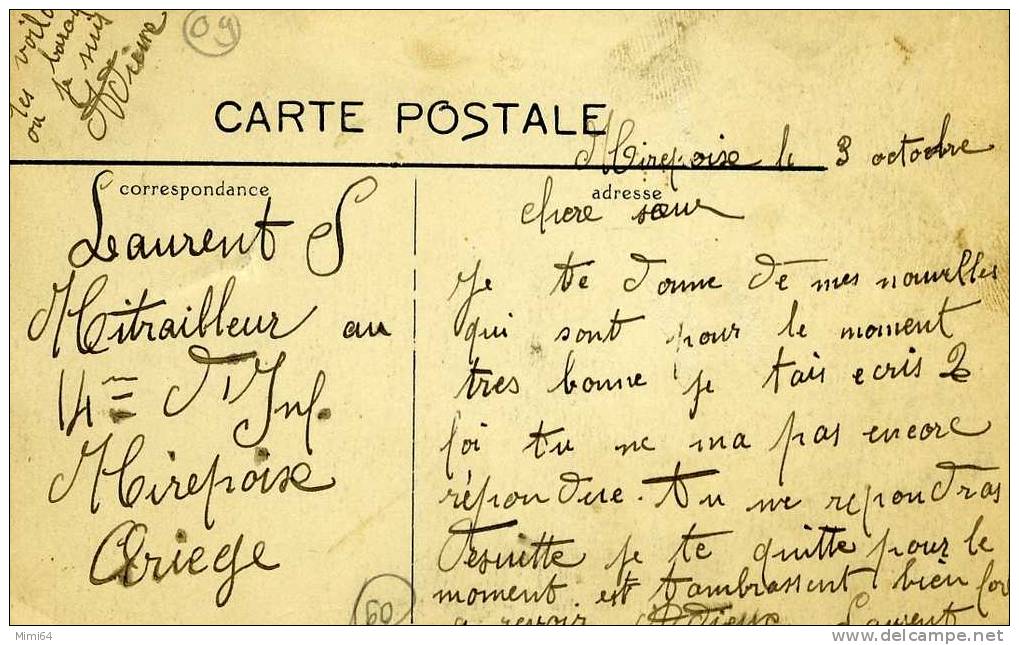 les voila
ou je
je suis
Adieue
09
CARTE POSTALE
Mirepoise le 3 octobre
correspondance
adresse
Laurent S
Mitrailleur au
14me d'Inf.
Mirepoise
Ariege
60
chere sœur
Je te donne de mes nouvelles
qui sont pour le moment
tres bonne je tais ecris 2
foi tu ne ma pas encore
répondue. Tu me repondras
Desuitte je te quitte pour le
moment est t'ambrassent bien for
a revoir Adieux Laurent
Mimi64
www.delcampe.net